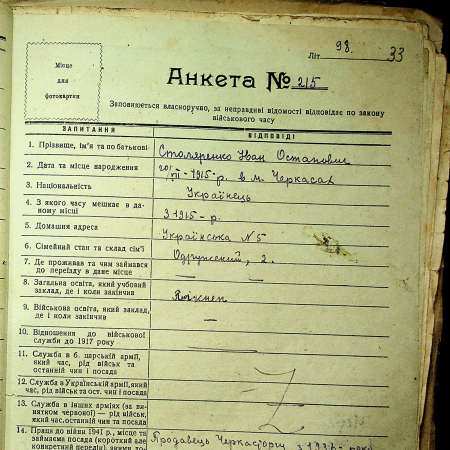 Літ. 98. 33
Місце
для
фотокартки
Анкета № 215
Заповнюється власноручно, за неправдиві відомості відповідає по закону
військового часу
ЗАПИТАННЯ ВІДПОВІДІ
1. Прізвище, ім'я та по батькові Столяренко Іван Остапович
2. Дата та місце народження 20/VII-1915-р. в м. Черкасах
3. Національність Українець
4. З якого часу мешкає в да-
ному місці З 1915-р.
5. Домашня адреса Українська N 5
6. Сімейний стан та склад сім'ї Одружений, 2.
7. Де проживав та чим займався
до переїзду в дане місце
8. Загальна освіта, який учбовий
заклад, де і коли закінчив
9. Військова освіта, який заклад,
де і коли закінчив —
10. Відношення до військової
служби до 1917 року
11. Служба в б. царській армії,
який час, рід військ та
останній чин і посада
12. Служба в Українській армії, який
час, рід військ та ост. чин і посада
13. Служба в інших арміях (за ви-
нятком червоної) — рід військ,
який час, останній чин та посада
14. Праця до війни 1941 р., місце та
займаєма посада (короткий але
конкретний перелік), якими до- Продавець Черкасторгу з